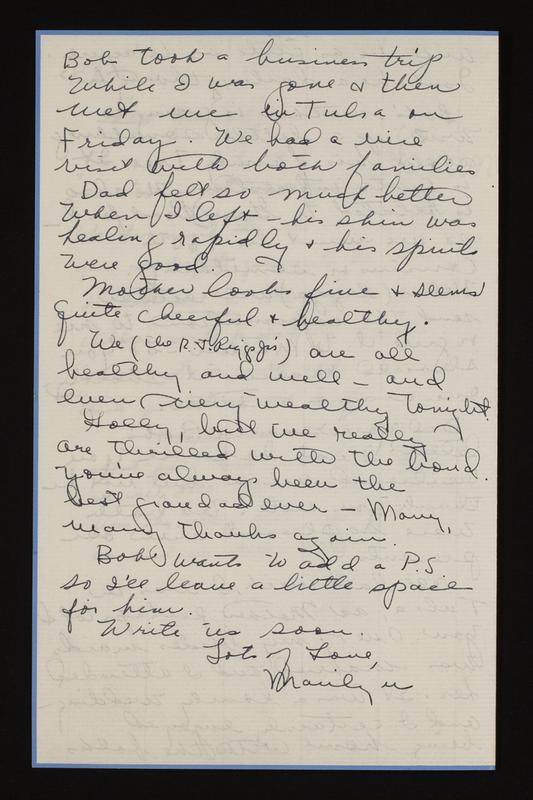 Bob took a business trip
while I was gone & then
met me in Tulsa on
Friday. We had a nice
visit with both families
Dad felt so much better
when I left – his skin was
healing rapidly & his spirits
were good.
Mother looks fine & seems
quite cheerful & healthy.
We (the R.J. Riggs's) are all
healthy and well – and
even very wealthy tonight.
Golly, but we really
are thrilled with the bond.
You've always been the
best grandad ever – Many,
many thanks again.
Bob wants to add a P.S
so I'll leave a little space
for him.
Write us soon.
Lots of Love,
Marilyn